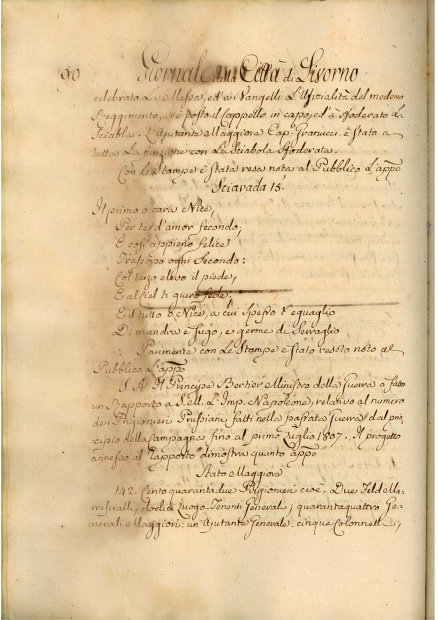 90 Giornale della Città di Livorno
celebrato La Messa, ed ai Vangelli L'Ufizialità del medemo
Reggimento, si è posto il Cappello in capo, ed à sfoderato le
Sciable. L'Ajutante Maggiore Cap. Granucci è stato a
tutta La funzione con La Sciabola sfoderata.
Con le stampe è stata resa nota al Pubblico L'appo
Sciarada 15.
Il primo o cara Nice,
Per te d'amor secondo;
E così appieno felice
Trascorro ogni Secondo:
Col terzo elevo il piede,
E al ciel ti giuro fede.
E il tutto o Nice, a cui spesso t'eguaglio
Di mandra è fugo, e germe di Serraglio
Parimente con Le Stampe è stato resoto noto al
Pubblico L'appo
S. A. Il Principe Bertier Ministro della Guerra à fatto
un Rapporto a S. M. L'Imp. Napoleone, relativo al numero
dei Prigionieri Prussiani, fatti nella passata Guerra dal prin
cipio della Campagna, fino al primo Luglio 1807. Il progetto
annesso al Rapporto dimostra quanto appo
Stato Maggiore
142. Cento quarantadue Prigionieri cioè. Due Feld Ma
rescialli, dodici Luogo Tenenti Generali; quarantaquattro Ge
nerali Maggiori: un'Ajutante Generale: cinque Colonnelli;